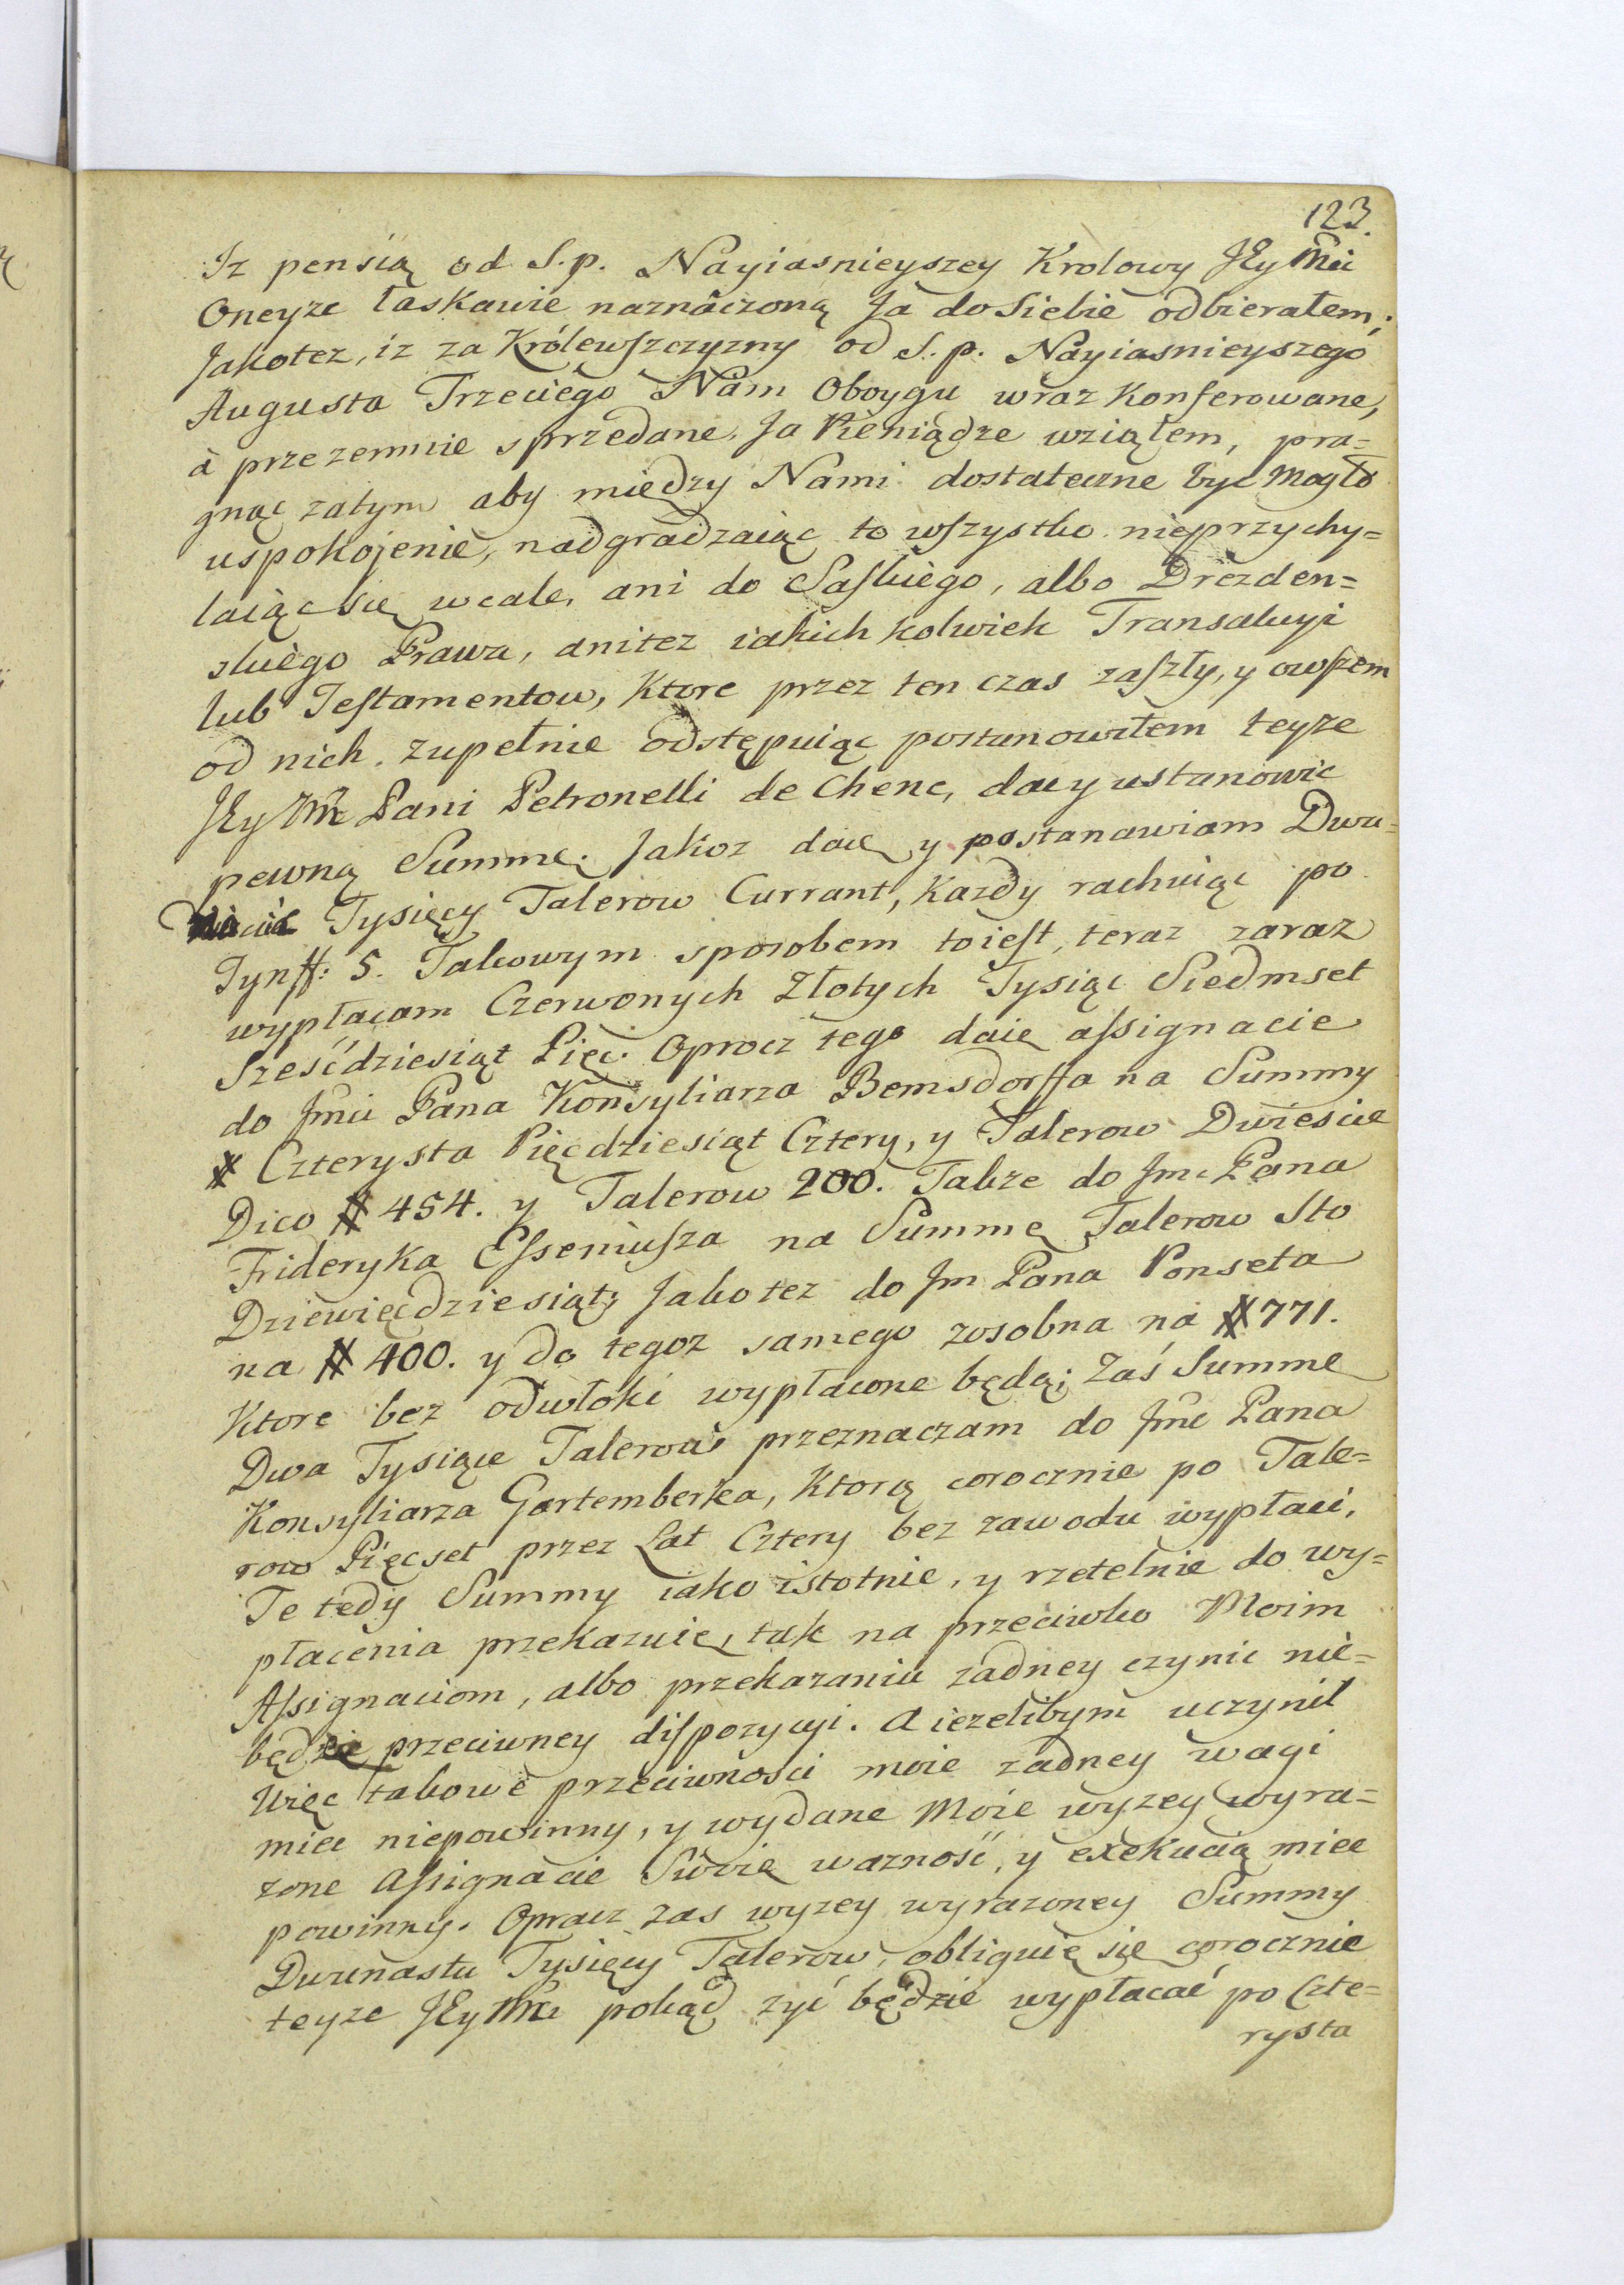 123.
Iz pensią od S. p. Nayiasnieyszey Krolowy JEyMci
Oneyze łaskawie naznaczoną Ja do siebie odbierałem;
Jakotez, iz za Królewszczyzny od S. p. Nayiasnieyszego
Augusta Trzeciego Nam Oboygu wraz konferowane,
à przezemnie sprzedane, Ja Pieniądze wziąłem, pra=
gnąc zatym aby między Nami dostateczne byc mogło
uspokojenie, nadgradzaiąc to wszystko nieprzychy=
laiąc się wcale, ani do Saskiego, albo Drezden=
skiego Prawa, anitez iakich kolwiek Transakcyi
lub Testamentow, Ktore przez ten czas zaszły, y owszem
od nich zupełnie odstępuiąc postanowiłem teyze
JEyMci Pani Petronelli de Chene, dac y ustanowic
pewną Summę. Jakoz daię y postanawiam Dwa=
nascie Tysięcy Talerow Currant, Kazdy rachuiąc po
Tynff: 5. Takowym sposobem toiest, teraz zaraz
wypłacam Czerwonych Złotych Tysiąc Siedmset
Sześćdziesiąt Pięć. Oprocz tego daię assignacie
do Jmci Pana Konsyliarza Bemsdorffa na Summy
# Czterysta Pięcdziesiąt Cztery, y Talerow Dwiescie
Dico # 454. y Talerow 200. Takze do Jmc Pana
Frideryka Esseniusza na Summę Talerow Sto
Dziewięcdziesiąt; Jako tez do Jm Pana Ponseta
na # 400. y do tegoz samego zosobna na # 771.
Ktore bez odwłoki wypłacone będą; Zaś Summę
Dwa Tysiące Talerow przeznaczam do Jmc Pana
Konsyliarza Gartemberka, Ktorą corocznie po Tale=
row Pięcset przez Lat Cztery bez zawodu wypłaci.
Te tedy Summy iako istotnie, y rzetelnie do wy=
płacenia przekazuię, tak na przeciwko Moim
Assignaciom, albo przekazaniu zadney czynic nie=
będzie przeciwney dispozycyi. A iezelibym uczynil
Więc takowe przeciwności moie zadney wagi
miec niepowinny, y wydane Moie wyzey wyra=
zone Assignacie Swoię waznosć, y exekucią miec
powinny. Oprocz zas wyzey wyrazoney Summy
Dwunastu Tysięcy Talerow, obliguię się corocznie
teyze JEyMci pokąd zyć będzie wypłacać po Czte=
rysta